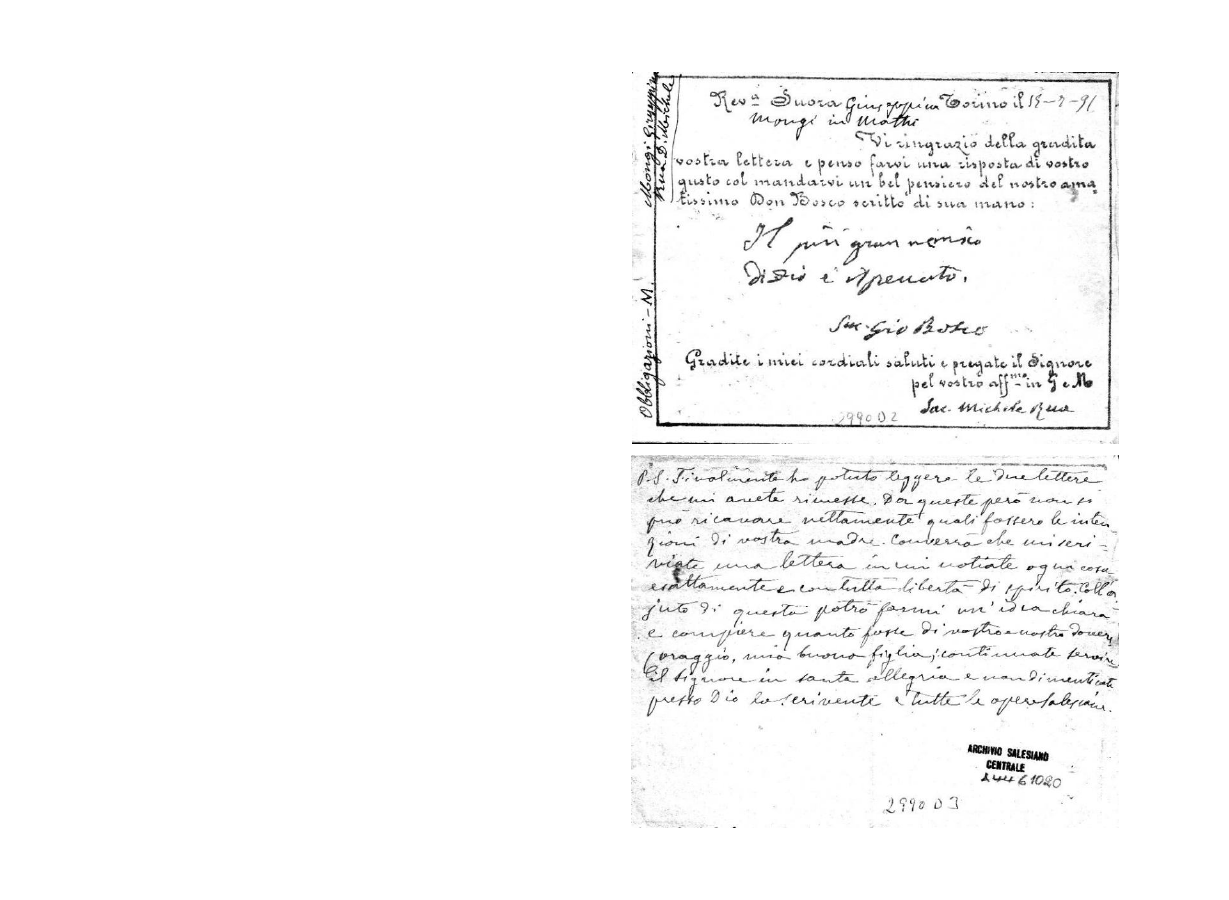 Rev.a Suora Giuseppina Torino il 15-7-91
Mongi in Mathi
Vi ringrazio della gradita
vostra lettera e penso farvi una risposta di vostro
gusto col mandarvi un bel pensiero del nostro ama-
tissimo Don Bosco scritto di sua mano:
Il più gran nemico
di Dio è il peccato.
Sac. Gio Bosco
Gradite i miei cordiali saluti e pregate il Signore
pel vostro aff.mo in G e M
Sac. Michele Rua
2990 D 2
Mongi Giuseppina
Rua D. Michele
Obbligazioni - M.
P.S. Finalmente ho potuto leggere le due lettere
che mi avete rimesse. Da queste però non si
può ricavare nettamente quali fossero le inten-
zioni di vostra madre. Converrà che mi scri-
viate una lettera in cui notiate ogni cosa
esattamente e con tutta libertà di spirito. Coll'a
juto di questa potrò farmi un'idea chiara
e compiere quanto fosse di vostro e nostro dovere
Coraggio, mia buona figlia; continuate servire
il Signore in santa allegria e non dimenticate
presso Dio lo scrivente e tutte le opere salesiane.
ARCHIVIO SALESIANO
CENTRALE
A4461020
2990 D 3